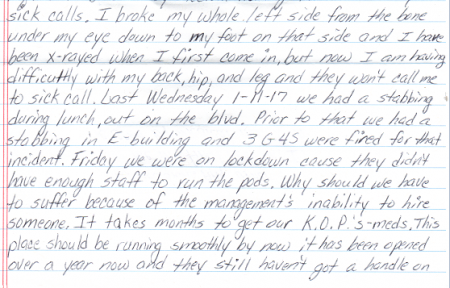 sick calls. I broke my whole left side from the bone
under my eye down to my foot on that side and I have
been x-rayed when I first come in, but now I am having
difficulty with my back, hip, and leg and they won't call me
to sick call. Last Wednesday 1-11-17 we had a stabbing
during lunch, out on the blvd. Prior to that we had a
stabbing in E-building and 3 G4S were fired for that
incident. Friday we were on lockdown cause they didn't
have enough staff to run the pods. Why should we have
to suffer because of the mangement's inability to hire
someone. It takes months to get our K.O.P.'s-meds. This
place should be running smoothly by now it has been opened
over a year now and they still haven't got a handle on